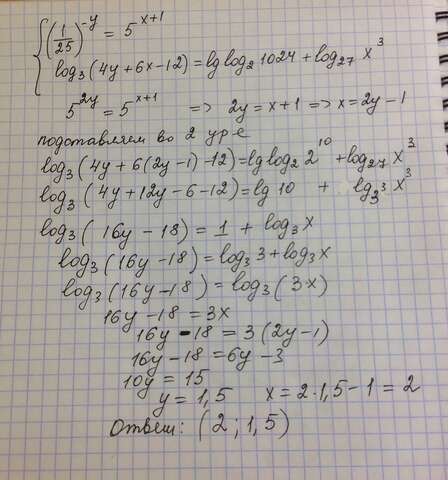 (1/25)^-y = 5^x+1
log₃(4y+6x-12)=lg log₂1024+log₂₇x³
5^2y = 5^x+1 => 2y=x+1 => x=2y-1
подставляем во 2 ур-е
log₃(4y+6(2y-1)-12)=lg log₂2¹⁰+log₂₇x³
log₃(4y+12y-6-12)=lg 10 + log₃³x³
log₃(16y-18)=1+log₃x
log₃(16y-18)=log₃3+log₃x
log₃(16y-18)=log₃(3·x)
16y-18=3x
16y-18=3(2y-1)
16y-18=6y-3
10y=15
y=1,5 x=2·1,5-1=2
Ответ: (2; 1,5)